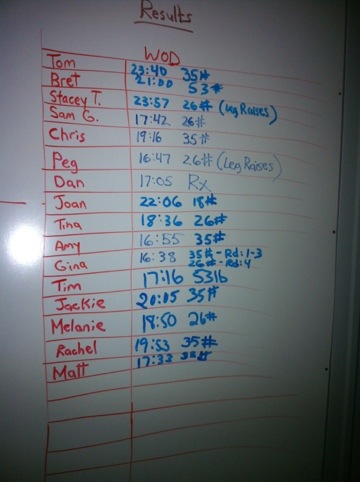 Results
WOD
Tom 23:40 35#
Bret 21:00 53#
Stacey T. 23:57 26# (Leg Raises)
Sam G. 17:42 26#
Chris 19:16 35#
Peg 16:47 26# (Leg Raises)
Dan 17:05 Rx
Joan 22:06 18#
Tina 18:36 26#
Amy 16:55 35#
Gina 16:38 35# - Rd: 1-3
26# - Rd: 4
Tim 17:16 53lb
Jackie 20:05 35#
Melanie 18:50 26#
Rachel 19:53 35#
Matt 17:33